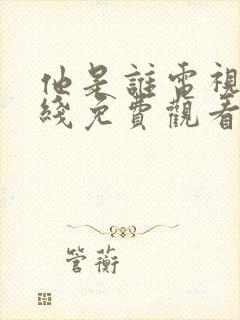 他是誰電視
綫免費觀看
管蘅